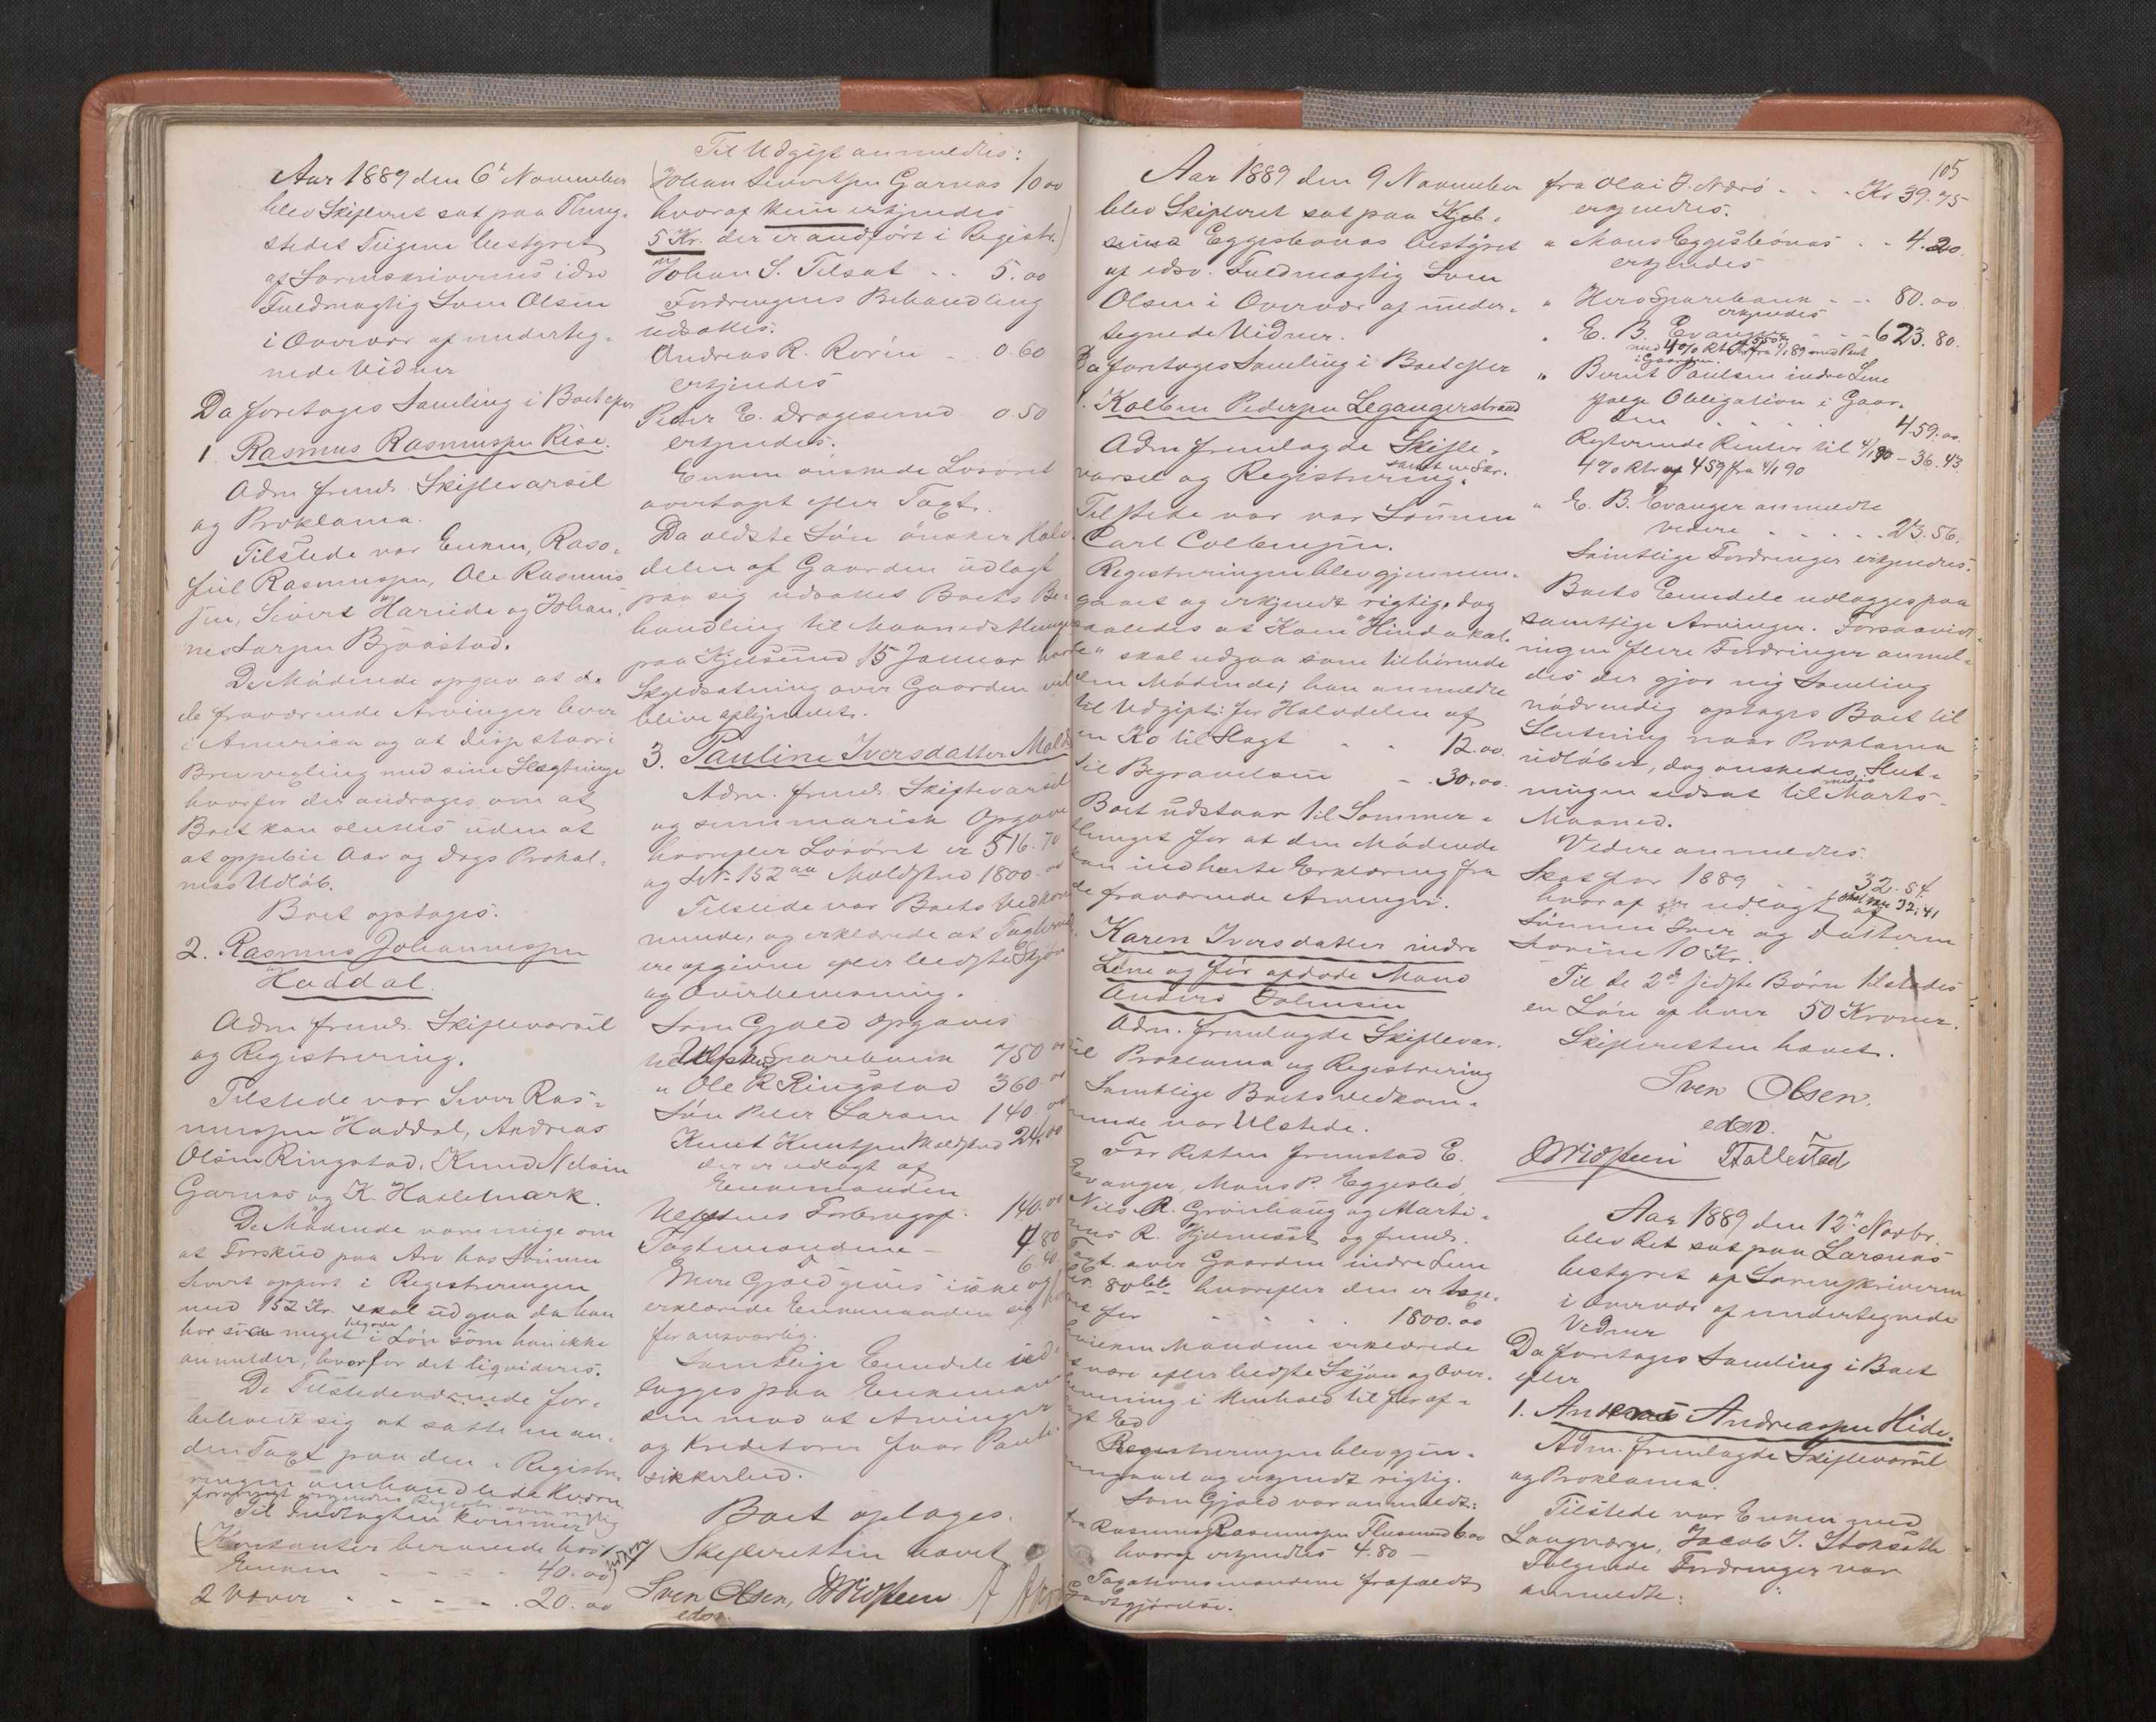 Aar 1889 den 6' November
blev Skifteret sat paa Thing-
stedet Teigene bestyret
af Sorenskriverens edsv
Fuldmægtig Sven Olsen
i Overvær af underteg-
nede Vidner
Da foretoges Samling i Boet efter
1. Rasmus Rasmussen Rise.
Adm freml. Skiftevarsel
og Proklama.
Tilstede var Enken, Ras-
Rasmussen, Ole Rasmus
sen, Sivert Hareide og Johan-
nes Larsen Bjåstad.
De Mødende opgav at de
de fraværende Arvinger bor
i America og at disse staar i
Brevvexling med sine Slægtninge
hvorfor der androges om at
Boet kan sluttes uden at
at oppebie Aar og Dags Prokla-
mas Udløb.
Boet optages.
2. Rasmus Johannessen
Haddal.
Adm freml. Skiftevarsel
og Registrering.
Tilstede var Sivert Ras-
mussen Haddal, Andreas
Olsen Ringstad, Knud Nelsen
Garnæs og K. Haslemark.
De Mødende vare enige om
at Forskud paa Arv hos Sønnen
Sivert opført i Registreringen
med 152 Kr. skal udgaa da han
har meget i Løn som han ikke
anmelder, hvorfor det liqvideres.
De Tilstedeværende for-
beholdt sig at sætte en an-
den Taxt paa den i Registre-
ringen omhandlede Kværn
Til Indtægten kommer
(Kontanter beroende hos
Enken - - - - 40.00)
2 Væver - - - - 20.00
Til Udgift anmeldtes:
(Johan Sivertsen Garnæs 10.00
hvoraf kun erkjendes
5 Kr. der er andført i Registr.)
Johan S. Tilsæt - - 5.00
Fordringens Behandling
udsattes.
Andreas R. Rovén - 0.60
erkjendes
Peter E. Dragesund 0.50
erkjendes.
Enken ønskede Løsøret
overtaget efter Taxt.
Da ældste Søn ønsker Halv
delen af Gaarden udlagt
paa sig udsattes Boets Be-
handling til Maanedsthinget
paa Kjelsund 15 Januar
Skyldsætning over Gaarden vil
blive afhjemlet.
3. Pauline Iversdatter Molds
Adm. freml. Skiftevarsel
og summarisk Opgave
hvorefter Løsøret er 516.70
og L. Nr. 152 Moldskred 1800.00
Tilstede var Boets Vedkom
mende, og erklærede at Taxterne
ere afgivne efter bedste Skjøn
og Overbevisning.
Som Gjæld opgaves
til Ulfstens Sparebank 750.00
" Ole R. Ringstad 360.00
Søn Peter Larsen 140.00
Knut Knutsen Moldskred 24.00
der er udlagt af
Enkemanden
Ulfstens Forbrugsf. 140.00
Taxtmændene - 4.80
6.40
Mere Gjæld gives ikke og
erklærede Enkemanden sig
for ansvarlig.
Samtlige Eiendele ud-
lægges paa Enkeman
den mod at Arvinger
og Kreditorer faar Pante-
sikkerhed.
Boet optages.
Skifteretten hævet
Sven Olsen,
edsv.
105
Aar 1889 den 9 November
blev Skifteret sat paa
Eggesbønæs bestyret
af edsv. Fuldmægtig Sven
Olsen i Overvær af under-
tegnede Vidner.
Da foretoges Samling i Boet efter
1. Kolben Pedersen Legangerstrand
Adm fremlagde Skifte-
varsel og Registrering.
Tilstede var var Sønnen
Carl Colbensen.
Registreringen blev gjennem-
gaaet og erkjendt rigtig, dog
saaledes at Koen "Hindakal-
" skal udgaa som tilhørende
den Mødende; han anmeldte
til Udgift: for Halvdelen af
en Ko til Slagt - - 12.00
til Begravelsen - - 30.00
Boet udstaar til Sommer-
thinget for at den Mødende
kan indhente Erklæring fra
de fraværende Arvinger.
Karen Iversdatter indre
Lene og før afdøde Mand
Anders Johnsen
Adm. fremlagde Skiftevar-
sel Proklama og Registrering
Samtlige Boets Vedkom-
mende var tilstede.
For Retten fremstod E.
Evanger, Mons P. Eggesbø,
Nils R. Grønhaug og Marti-
nus R. Hjelmesæt og freml.
Taxt. over Gaarden indre Lene
hvorefter den er tage-
ret for - - - 1800.00
Mændene erklærede
at være efter bedste Skjøn og Over-
bevisning i Henhold til før af-
lagt Ed
Registreringen blev gjen-
nemgaaet og erkjendt rigtig.
Som Gjæld var anmeldt:
fra Rasmus Rasmussen Flusund 6.00
hvoraf erkjendtes 4.80 -
Taxationsmændene frafaldt
Godtgjørelse.
fra Olai J. Nærø - - - Kr 39.75
erkjendtes.
" Mons Eggesbønæs - - 4.20.
erkjendes
" Herø Sparebank - - 80.00
erkjendes
" E. B. Evanger - - 623.80.
" Bernt Paulsen indre Lene
ifølge Obligation i Gaar-
den - - - - 459.00.
Resterende Renter til 4/1 90 - 36.43
4% Rtr af 459 fra 4/1 90
" E. B. Evanger anmeldte
videre - - - - 23.56.
Samtlige Fordringer erkjendtes.
Boets Eiendele udlægges paa
samtlige Arvinger. Forsaavidt
ingen flere Fordringer anmel-
des der gjør ny Samling
nødvendig optages Boet til
Slutning naar Proklama
udløber, dog ønskedes Slut-
ningen udsat til medio Marts-
Maaned.
Videre anmeldtes.
Skat for 1889 32.54
hvoraf er udlagt af
Sønnen Iver og Datteren
Severine 10 Kr.
Til de 2de sidste Børn tilstodes
en Løn af hver 50 Kroner.
Skifteretten hævet.
Sven Olsen.
edsv.
Aar 1889 den 12' Novbr.
blev Ret sat paa Larsnæs
bestyret af Sorenskriveren
i Overvær af undertegnede
Vidner
Da foretoges Samling i Boet
efter
1. Andreas Andreassen Hide.
Adm. fremlagde Skiftevarsel
og Proklama.
Tilstede var Enken med
Laugværge, Jacob J. Stoksæth
Følgende Fordringer var
anmeldte: